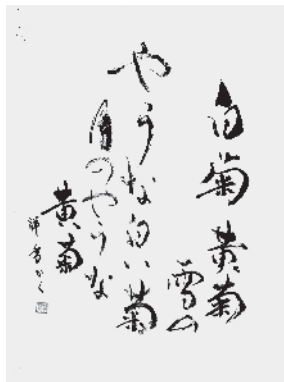 白菊黄菊
雪の
やうな白い菊
月のやうな
黄菊